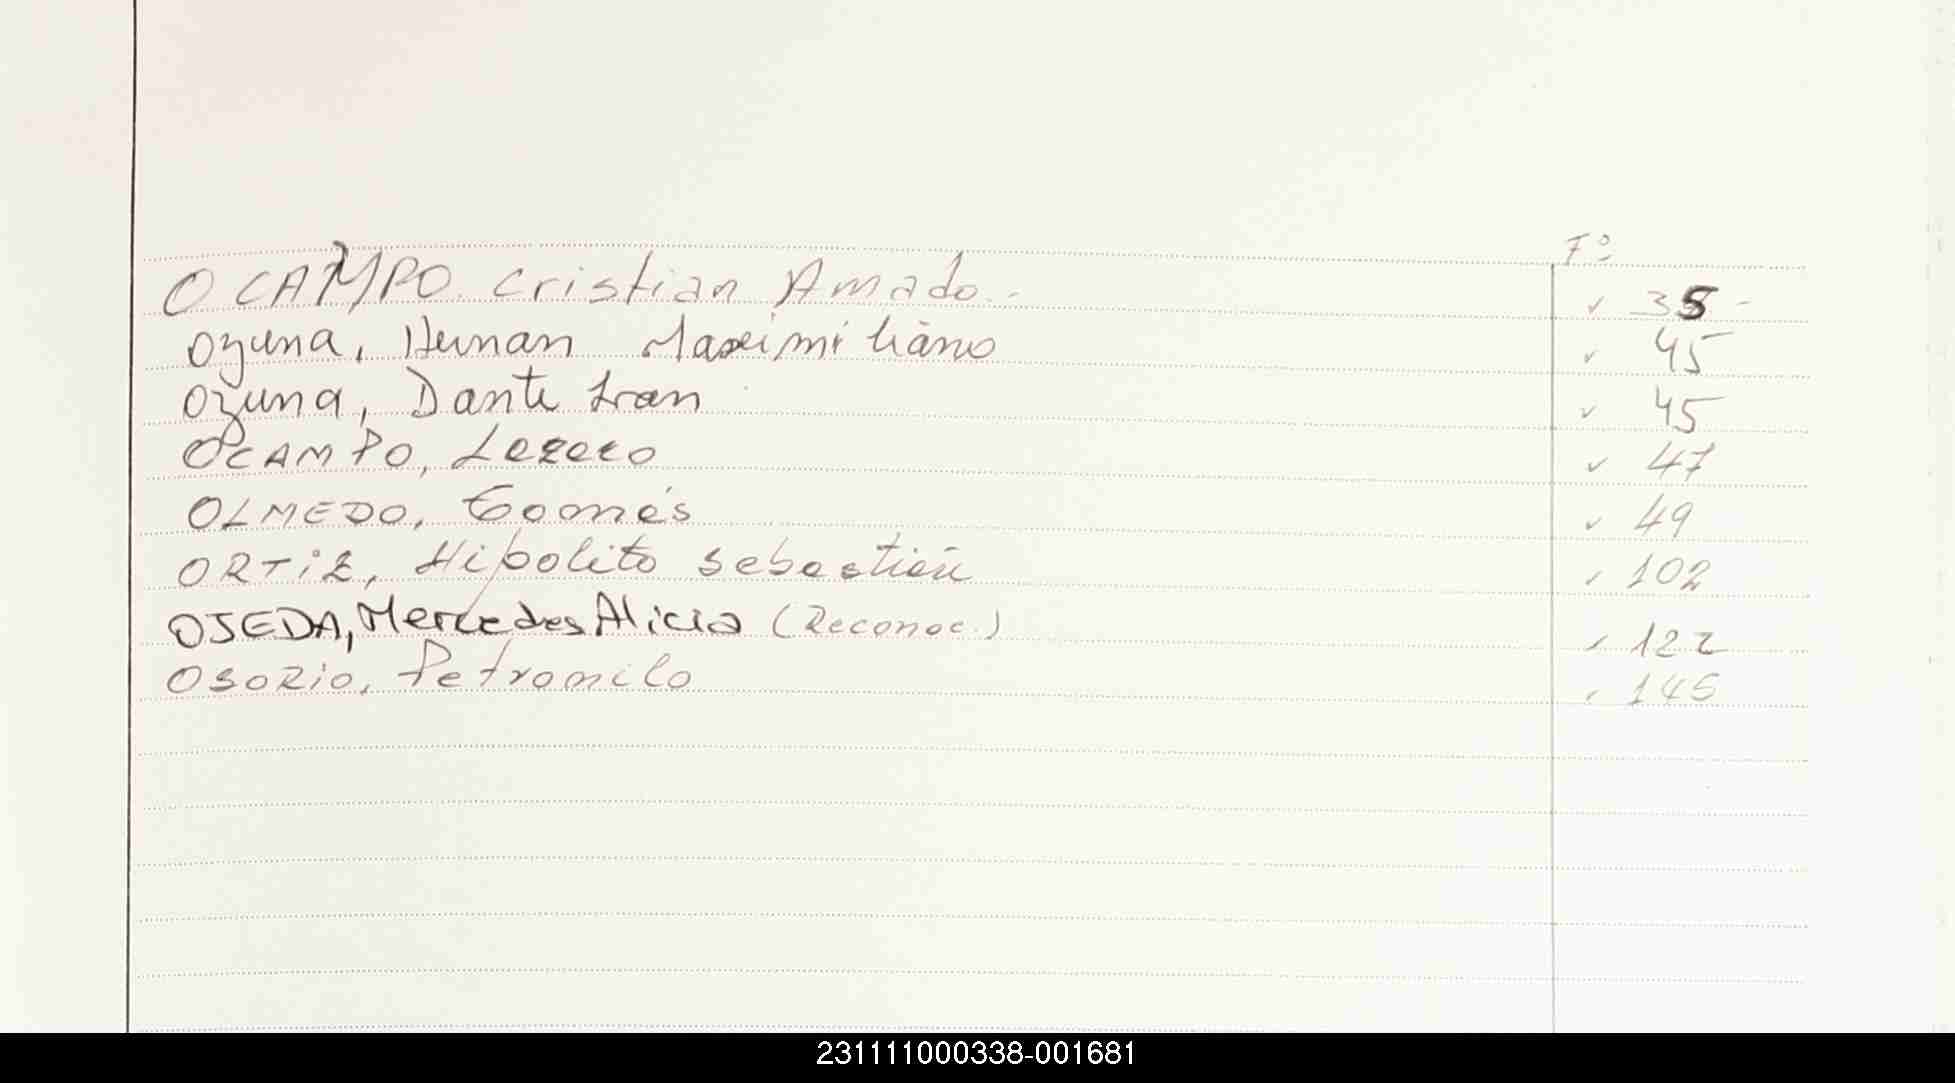 F°:
OCAMPO. Cristian Amado.- ✓ 35 -
Ozuna, Hernan Maximiliano ✓ 45
Ozuna, Dante Ivan ✓ 45
OCAMPO, Lazaro ✓ 47
OLMEDO, Tomás ✓ 49
ORTiZ, Hipolito Sebastián ✓ 102
OJEDA, Mercedes Alicia (Reconoc.) ✓ 122
OSORiO, Petronilo ✓ 145
231111000338-001681